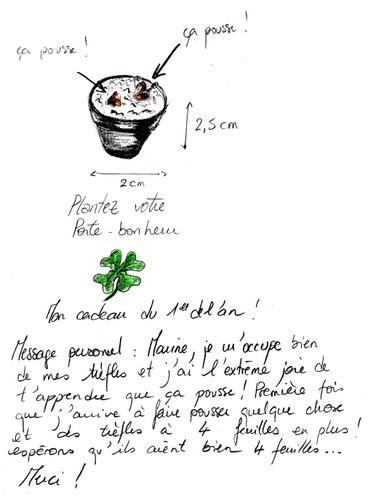 ça pousse !
ça pousse !
2,5 cm
2 cm
Plantez votre
Porte-bonheur
Mon cadeau du 1er de l'an !
Message personnel : Marine, je m'occupe bien
de mes trèfles et j'ai l'extrême joie de
t'apprendre que ça pousse ! Première fois
que j'arrive à faire pousser quelque chose
et des trèfles à 4 feuilles en plus !
espérons qu'ils aient bien 4 feuilles...
Merci !